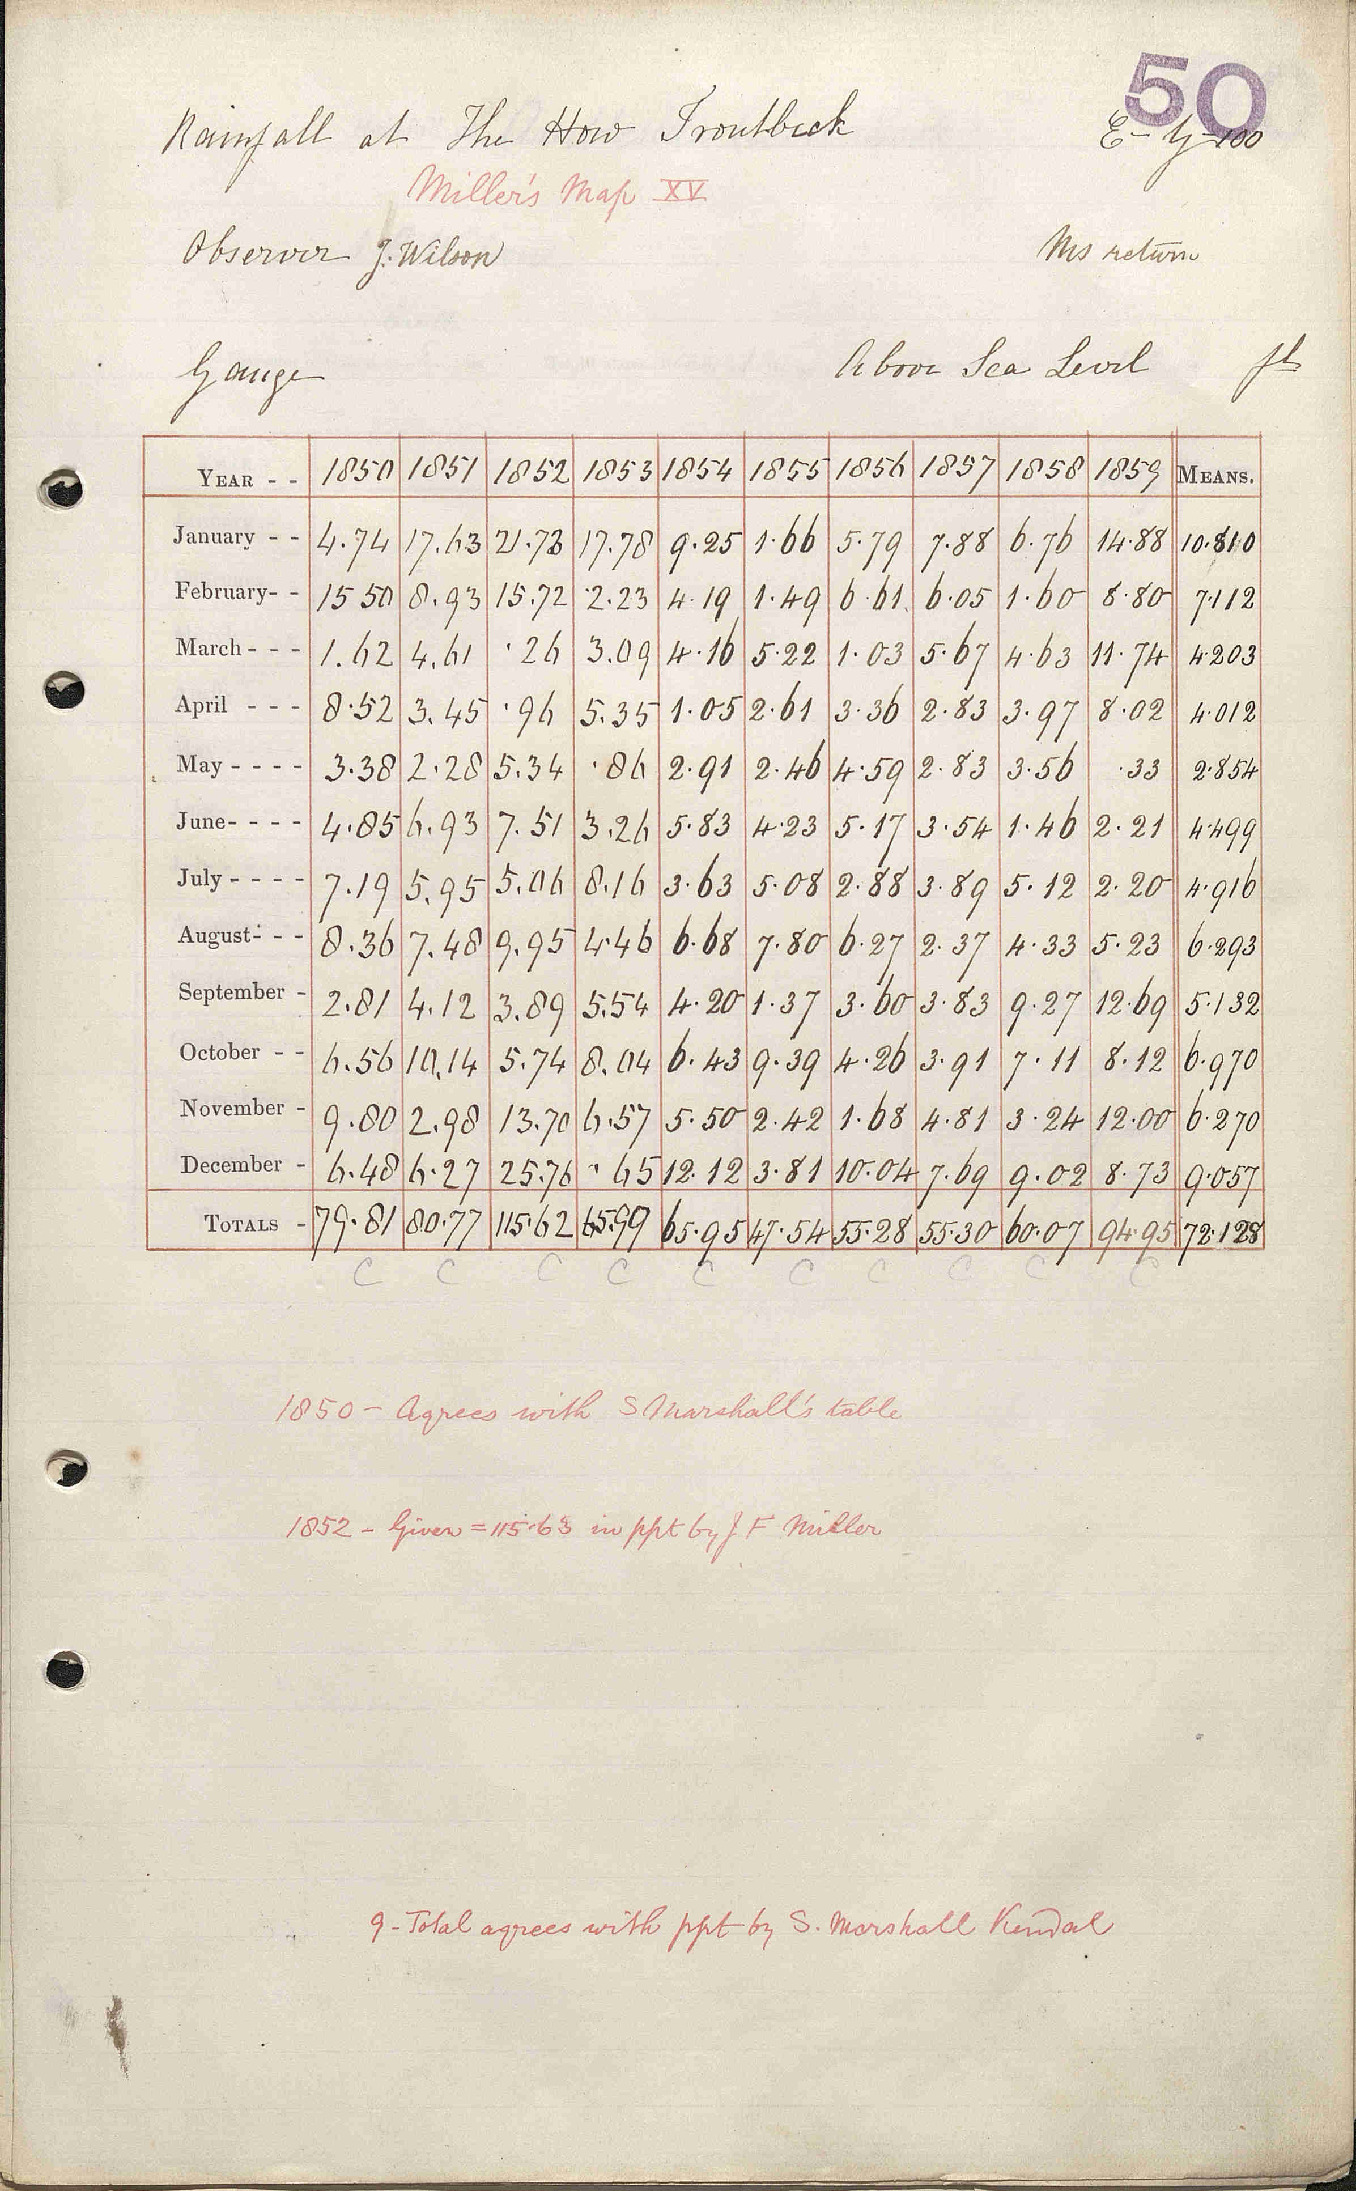 50
Rainfall at The How Troutbeck
Miller's Map XV
Observer J. Wilson Ms return
Gauge Above Sea Level ft
YEAR - - 1850 1851 1852 1853 1854 1855 1856 1857 1858 1859 MEANS.
January - - 4.74 17.63 21.73 17.78 9.25 1.66 5.79 7.88 6.76 14.88 10.810
February- - 15 50 8.93 15.72 2.23 4.19 1.49 6.61 6.05 1.60 8.80 7.112
March - - - 1.62 4.61 .26 3.09 4.16 5.22 1.03 5.67 4.63 11.74 4.203
April - - - 8.52 3.45 .96 5.35 1.05 2.61 3.36 2.83 3.97 8.02 4.012
May - - - - 3.38 2.28 5.34 .86 2.91 2.46 4.59 2.83 3.56 .33 2.854
June- - - - 4.85 6.93 7.51 3.26 5.83 4.23 5.17 3.54 1.46 2.21 4.499
July - - - - 7.19 5.95 5.06 8.16 3.63 5.08 2.88 3.89 5.12 2.20 4.916
August- - - 8.36 7.48 9.95 4.46 6.68 7.80 6.27 2.37 4.33 5.23 6.293
September - 2.81 4.12 3.89 5.54 4.20 1.37 3.60 3.83 9.27 12.69 5.132
October - - 6.56 10.14 5.74 8.04 6.43 9.39 4.26 3.91 7.11 8.12 6.970
November - 9.80 2.98 13.70 6.57 5.50 2.42 1.68 4.81 3.24 12.00 6.270
December - 6.48 6.27 25.76 .65 12.12 3.81 10.04 7.69 9.02 8.73 9.057
TOTALS - 79.81 80.77 115.62 65.99 65.95 47.54 55.28 55.30 60.07 94.95 72.128
C C C C C C C C C C
1850 - Agrees with S Marshall's table
1852 - Given = 115.63 in ppt by J F Miller
9 - Total agrees with ppt by S. Marshall Kendal